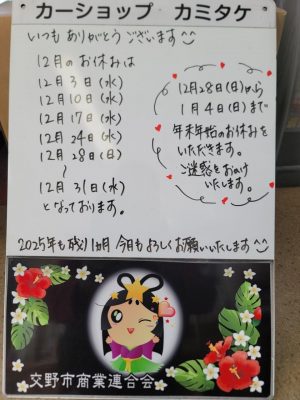 カーショップ カミタケ
いつも ありがとう ございます
12月のお休みは
12月 3日(水)
12月 10日(水)
12月 17日(水)
12月 24日(水)
12月 28日(日)
〜
12月 31日(水)
となっております。
12月28日(日)から
1月4日(日)まで
年末年始のお休みを
いただきます。
ご迷惑をおかけ
いたします。
2025年も残り1ヵ月 今月もよろしくお願いいたします
交野市商業連合会